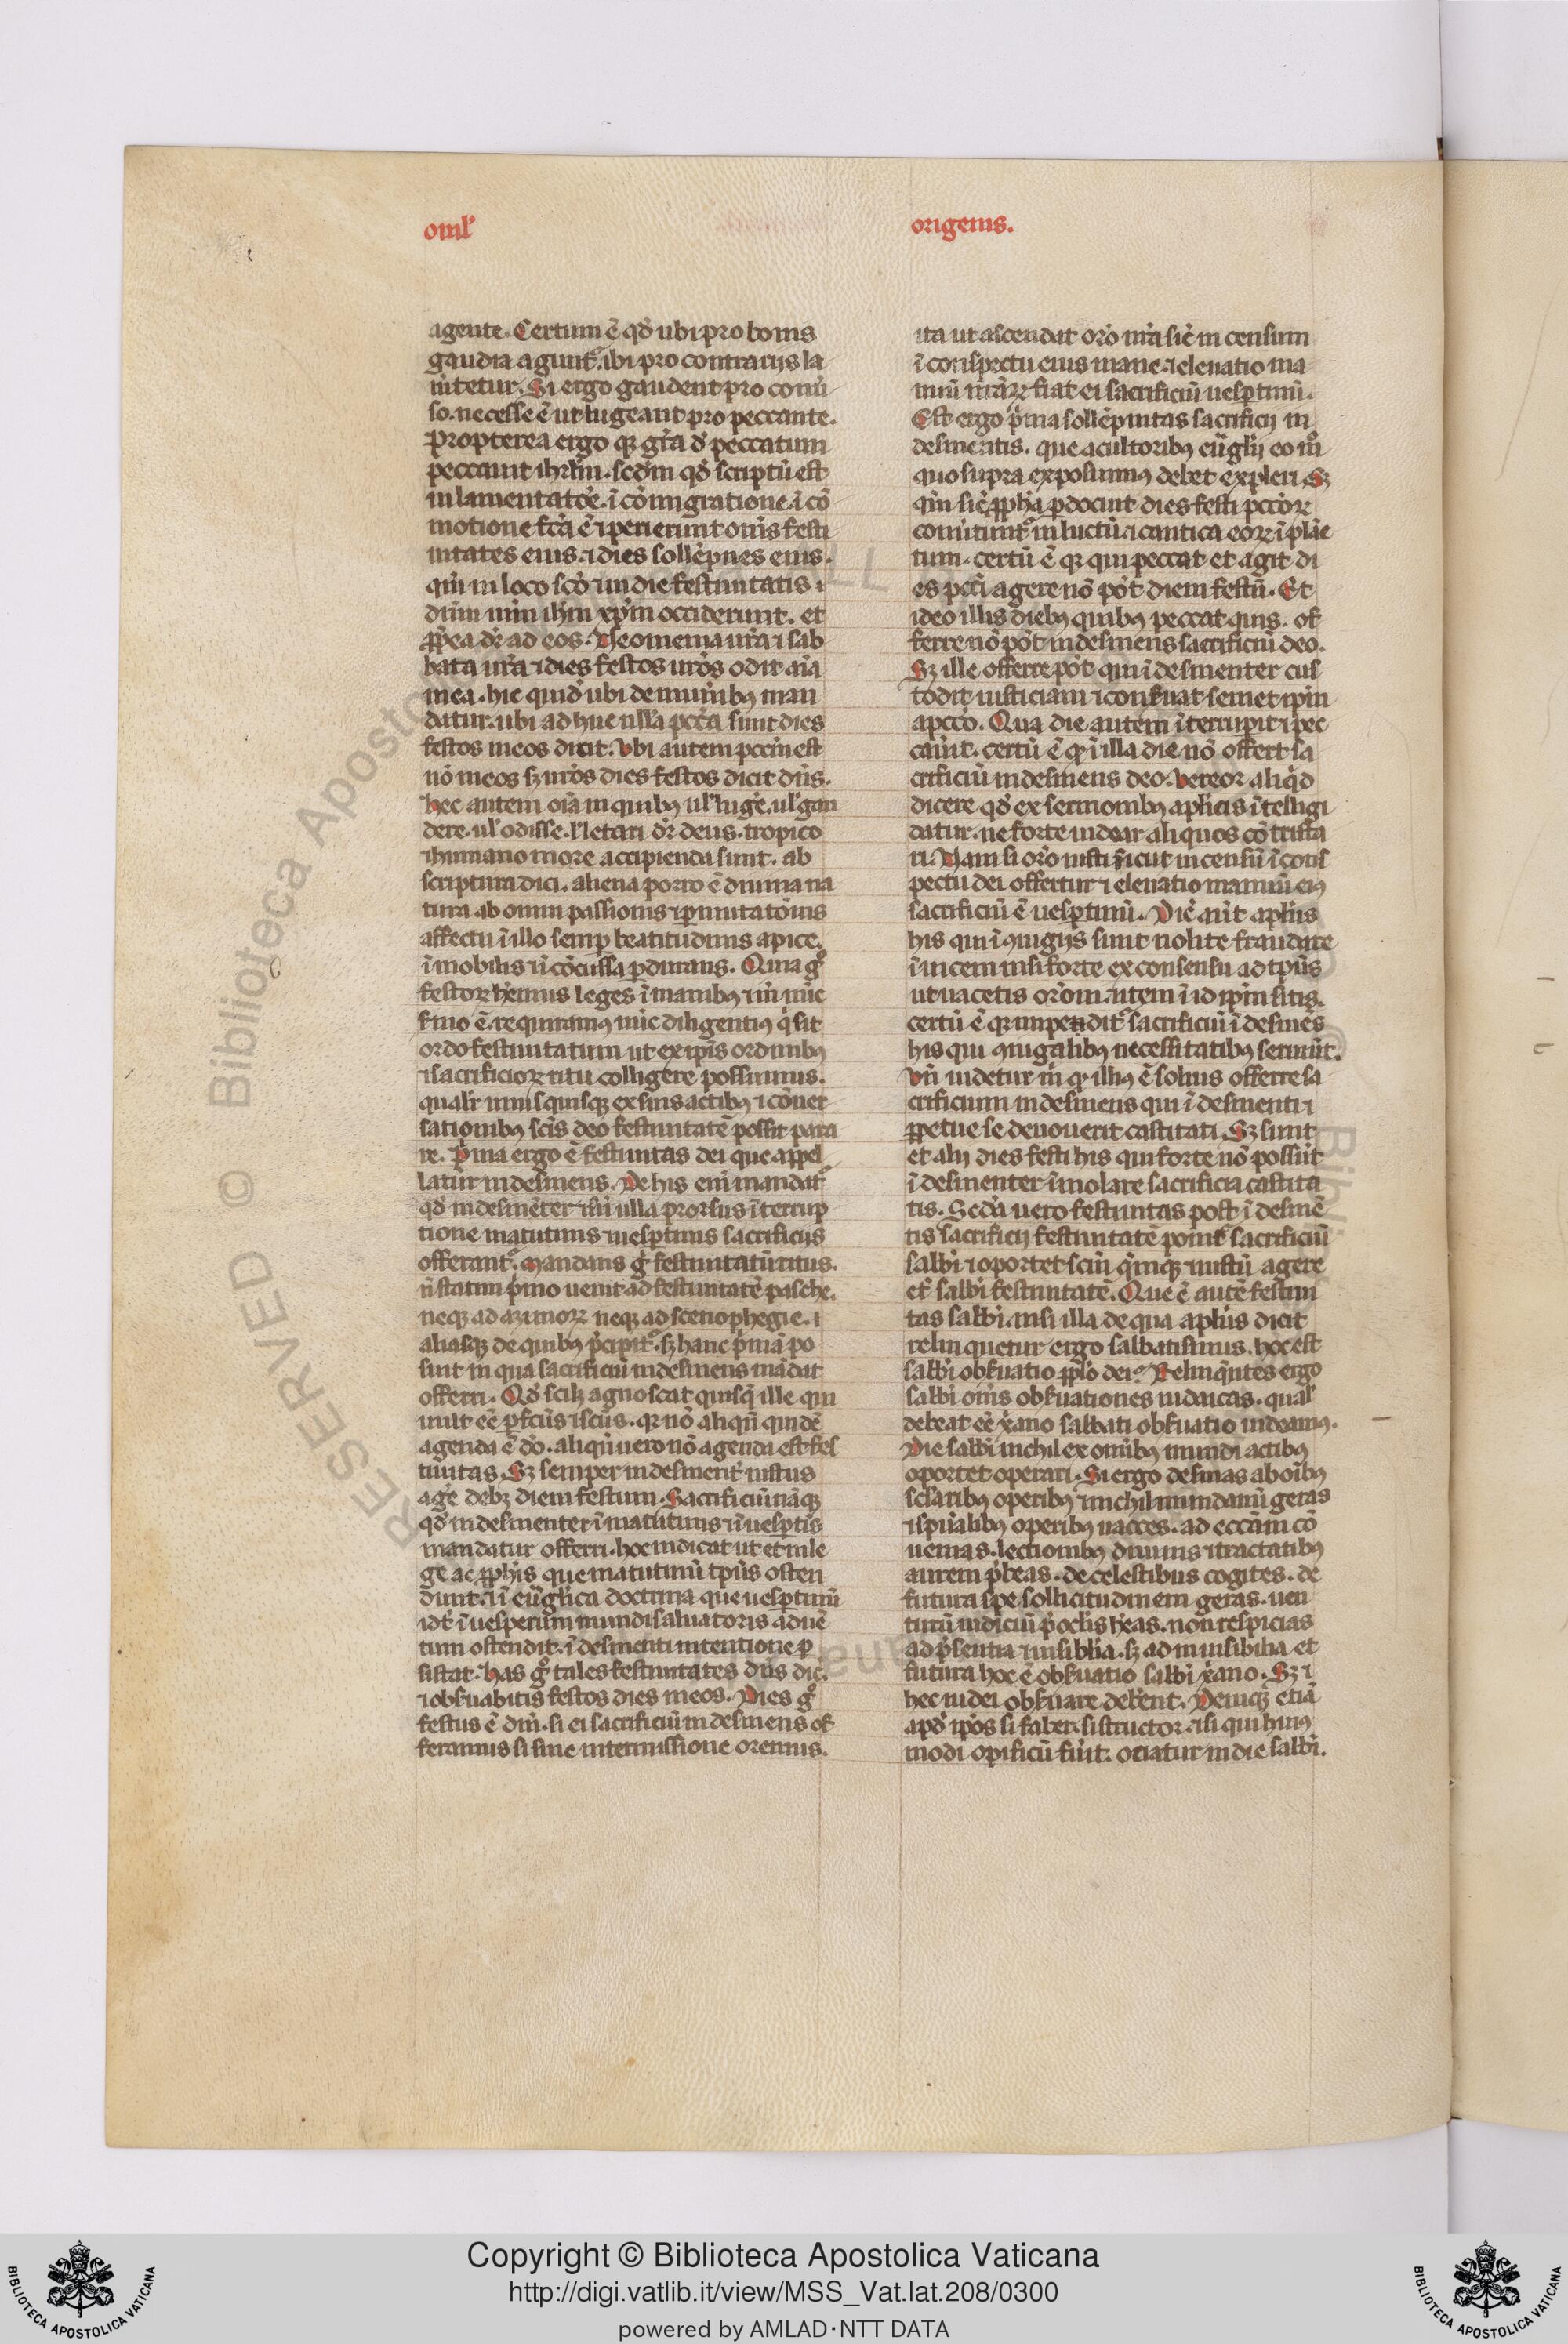 oml'
origenis.
agente. Certum ē qd̓ ubi pro bonis
gaudia agunt᷑. ibi pro contrarijs la
mt̓etur. Si ergo gaudent pro conu̓
so. necesse ē ut lugeant pro peccante.
Propterea ergo qꝛ gr̄a d̓ peccatum
peccauit ihrl̄m. scdm̄ qd̓ scriptū est
in lamentatōe. ī cōmigratione. ī cō
motione fc̄a ē ⁊ perierunt om̄s festi
uitates eius. ⁊ dies sollēpnes eius.
qm̄ in loco sc̄o ⁊ in die festiuitatis ⁊
dn̄m nr̄m ihm̄ xp̄m occiderunt. et
ꝓpt̓ea dr̄ ad eos. Neomenia ur̄a ⁊ sab
bata ur̄a ⁊ dies festos ur̄os odit aīa
mea. hic quid̓ ubi de muīnibꝫ man
datur. ubi adhuc nll̄a pccā sunt dies
festos meos dicit. Vbi autem pccm̄ est
nō meos sꝫ ur̄os dies festos dicit dn̄s.
hec autem oīa in quibꝫ ul' luge̓. ul' gau
dere. ul' odisse. l' letari dr̄ deus. tropico
⁊ humano more accipienda sunt. ab
scriptura dici. aliena porro ē diuina na
tura ab omni passionis ⁊ ꝑmutatōnis
affectu ī illo semꝑ beatitudinis apice.
īmobilis ⁊ ī cōcussa ꝑdurans. Quia gͦ
festoꝝ hēmus leges ī manibꝫ ⁊ in̄ nūc
ẜmo ē. requiramꝰ nūc diligentiꝰ qͥ sit
ordo festiuitatum ut ex ip̄is ordinibꝫ
⁊ sacrificioꝝ ritu colligere possimus.
qualit̓ unusquisqꝫ ex suis actibꝫ ⁊ cōuer
sationibꝫ sc̄is deo festiuitatē possit para
re. Pͥma ergo ē festiuitas dei que appel
latur indesinens. De his eni̅ mandat᷑
qd̓ indesinēter ⁊ sn̄ ulla prorsus īterrup
tione matutinis ⁊ uesꝑtinis sacrificijs
offerant᷑. Mandans gͦ festiuitatū ritus.
n̄ statim pͥmo uenit ad festiuitatē pasche.
neqꝫ ad azimoꝝ neqꝫ ad scenophegie. ⁊
aliasqꝫ de quibꝫ p̄cipit᷑. sꝫ hanc pͥmā po
suit in qua sacrificiū indesinens mādat
offerri. Qd̓ scilꝫ agnoscat quisqͥ ille qui
uult eē ꝑfcūs ⁊ scūs. qꝛ nō aliqn̄ quidē
agenda ē dō. aliqn̄ uero nō agenda est fes
tiuitas. Sꝫ semper indesinent̓ iustus
age̓ debꝫ diem festum. Sacrificiū nāqꝫ
qd̓ indesinenter ī matutinis ⁊ ī uesꝑtīs
mandatur offerri. hoc indicat ut et in le
ge ac ꝓph̄is que matutinū tp̄us osten
dunt. ⁊ ī eu̅gl̄ica doctrina que uesꝑtinū
idt̄ ī uesperum mundi saluatoris aduē
tum ostendit. ī desinenti intentione ꝑ
sistat. has gͦ tales festiuitates dn̄s dic̓.
⁊ obẜuabitis festos dies meos. Dies gͦ
festus ē dn̄i. si ei sacrificiū indesinens of
feramus si sine intermissione oremus.
ita ut ascendat or̄o nr̄a sic̄ in censum
ī conspectu eius mane. ⁊ eleuatio ma
nuū nr̄aꝝ fiat ei sacrificiū uesꝑtinū.
Est ergo pͥma sollēpnitas sacrificij in
desinentis. que a cultoribꝫ eu̅glij eo mͦ
quo supra exposuimꝰ debet expleri. Sꝫ
qm̄ sic̄ ꝓph̄a ꝑdocuit dies festi pccōꝝ
conu̓tunt᷑ in luctū ⁊ cantica eoꝝ ī plāc
tum. certū ē qꝛ qui peccat et agit di
es pcc̄i agere nō pōt diem festū. Et
ideo illis diebꝫ quibꝫ peccat quis. of
ferre nō pōt indesinens sacrificiū deo.
Sꝫ ille offerre pōt qui ī desinenter cus
todit iusticiam ⁊ conẜuat semet ip̄m
a pccō. Qua die autem īterrupit ⁊ pec
cau̓it. certū ē qꝛ ī illa die nō offert sa
crificiū indesinens deo. Vereor aliqͥd
dicere qd̓ ex sermonibꝫ apl̄icis ītelligi
datur. ne forte uidear aliquos cōtrista
ri. Nam si or̄o iusti sicut incensū ī cons
pectu dei offertur ⁊ eleuatio manuū eiꝰ
sacrificiū ē uesꝑtinū. Dic̄ aūt apl̄us
his qui ī ꝯiugijs sunt nolite fraudare
īuicem nisi forte ex consensu ad tp̄us
ut uacetis or̄oni. ⁊ item̄ ī id ip̄m sitis.
certū ē qꝛ impendit᷑ sacrificiū ī desinēs
his qui ꝯiugalibꝫ necessitatibꝫ seruiūt.
Vn̄ uidetur m̄ qꝛ illiꝰ ē solius offerre sa
crificium indesinens qui ī desinenti ⁊
ꝑpetue se deuouerit castitati. Sꝫ sunt
et alij dies festi his qui forte nō possūt
ī desinenter īmolare sacrificia castita
tis. Scda̓ uero festiuitas post ī desinē
tis sacrificij festiuitatē ponit᷑ sacrificiū
sabb̓i ⁊ oportet scūm qͥmqꝫ ⁊ iustū agere
et̓ sabb̓i festiuitatē. Que ē autē festiui
tas sabb̓i. nisi illa de qua apl̄us dicit
relinquetur ergo sabbatismus. hoc est
sabb̓i obẜuatio ppl̄o dei. Relinqͥntes ergo
sabb̓i om̄s obẜuationes iudaicas. qual'
debeat eē x̄ano sabbati obẜuatio uideamꝰ.
Die sabb̓i nichil ex om̄ibꝫ mundi actibꝫ
oportet operari. Si ergo desinas ab oīb̓ꝫ
sclaribꝫ operibꝫ ⁊ nichil mundanū geras
⁊ spūalibꝫ operibꝫ uacces. ad eccām cō
uenias. lectionibꝫ diuinis ⁊ tractatibꝫ
aurem p̄beas. de celestibus cogites. de
futura spe sollicitudinem geras. uen
turū iudiciū p̄ oclīs he̓as. non respicias
ad p̄sentia ⁊ uisib̄lia. sꝫ ad inuisibilia et
futura hoc ē obẜuatio sabb̓i x̄ano. Sꝫ ⁊
hec iudei obẜuare debent̓. Deniqꝫ etiā
apd̓ ip̄os si faber. si structor. ⁊ si qui huiꝰ
modi opificū fu̓it. ociatur in die sabb̓i.
Copyright © Biblioteca Apostolica Vaticana
http://digi.vatlib.it/view/MSS_Vat.lat.208/0300
powered by AMLAD·NTT DATA
BIBLIOTECA APOSTOLICA VATICANA
BIBLIOTECA APOSTOLICA VATICANA